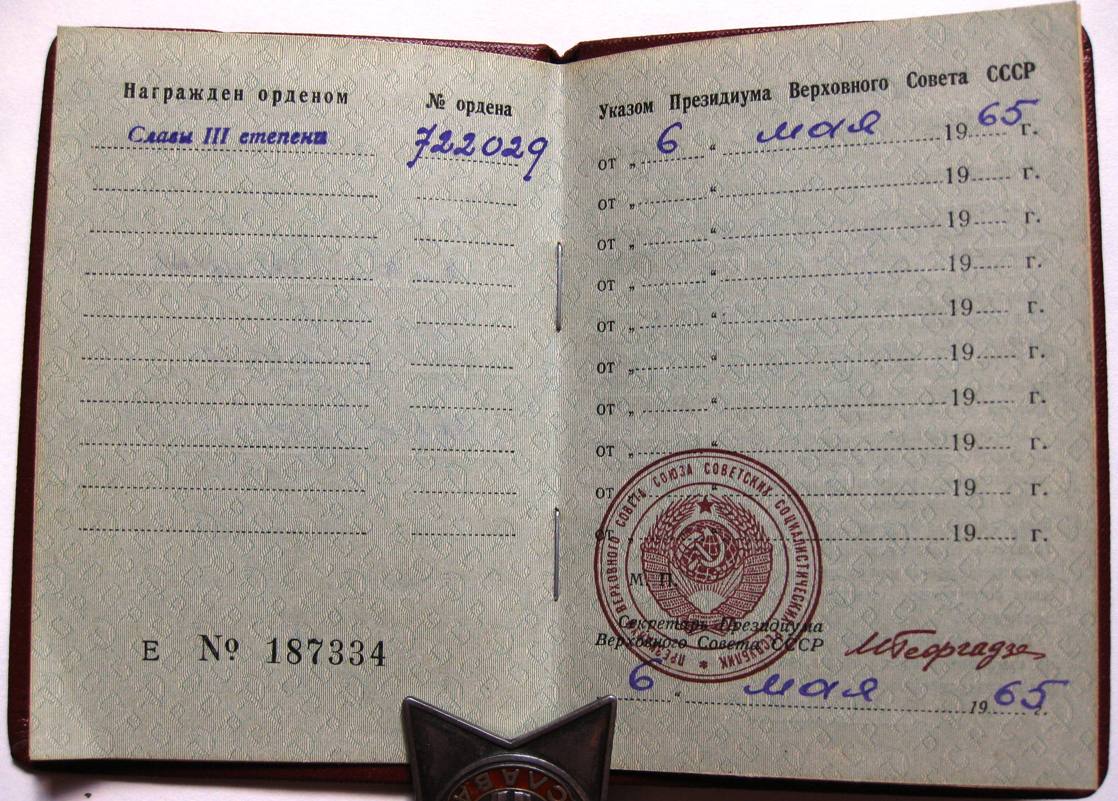 Награжден орденом
№ ордена
Славы III степени
722029
Е № 187334
Указом Президиума Верховного Совета СССР
от „ 6 “ мая 1965 г.
от „ “ 19 г.
от „ “ 19 г.
от „ “ 19 г.
от „ “ 19 г.
от „ “ 19 г.
от „ “ 19 г.
от „ “ 19 г.
от „ “ 19 г.
от „ “ 19 г.
ПРЕЗИДИУМ ВЕРХОВНОГО СОВЕТА СОЮЗА СОВЕТСКИХ СОЦИАЛИСТИЧЕСКИХ РЕСПУБЛИК
М. П.
Секретарь Президиума
Верховного Совета СССР
МГеоргадзе
„ 6 “ мая 1965 г.
СЛАВА